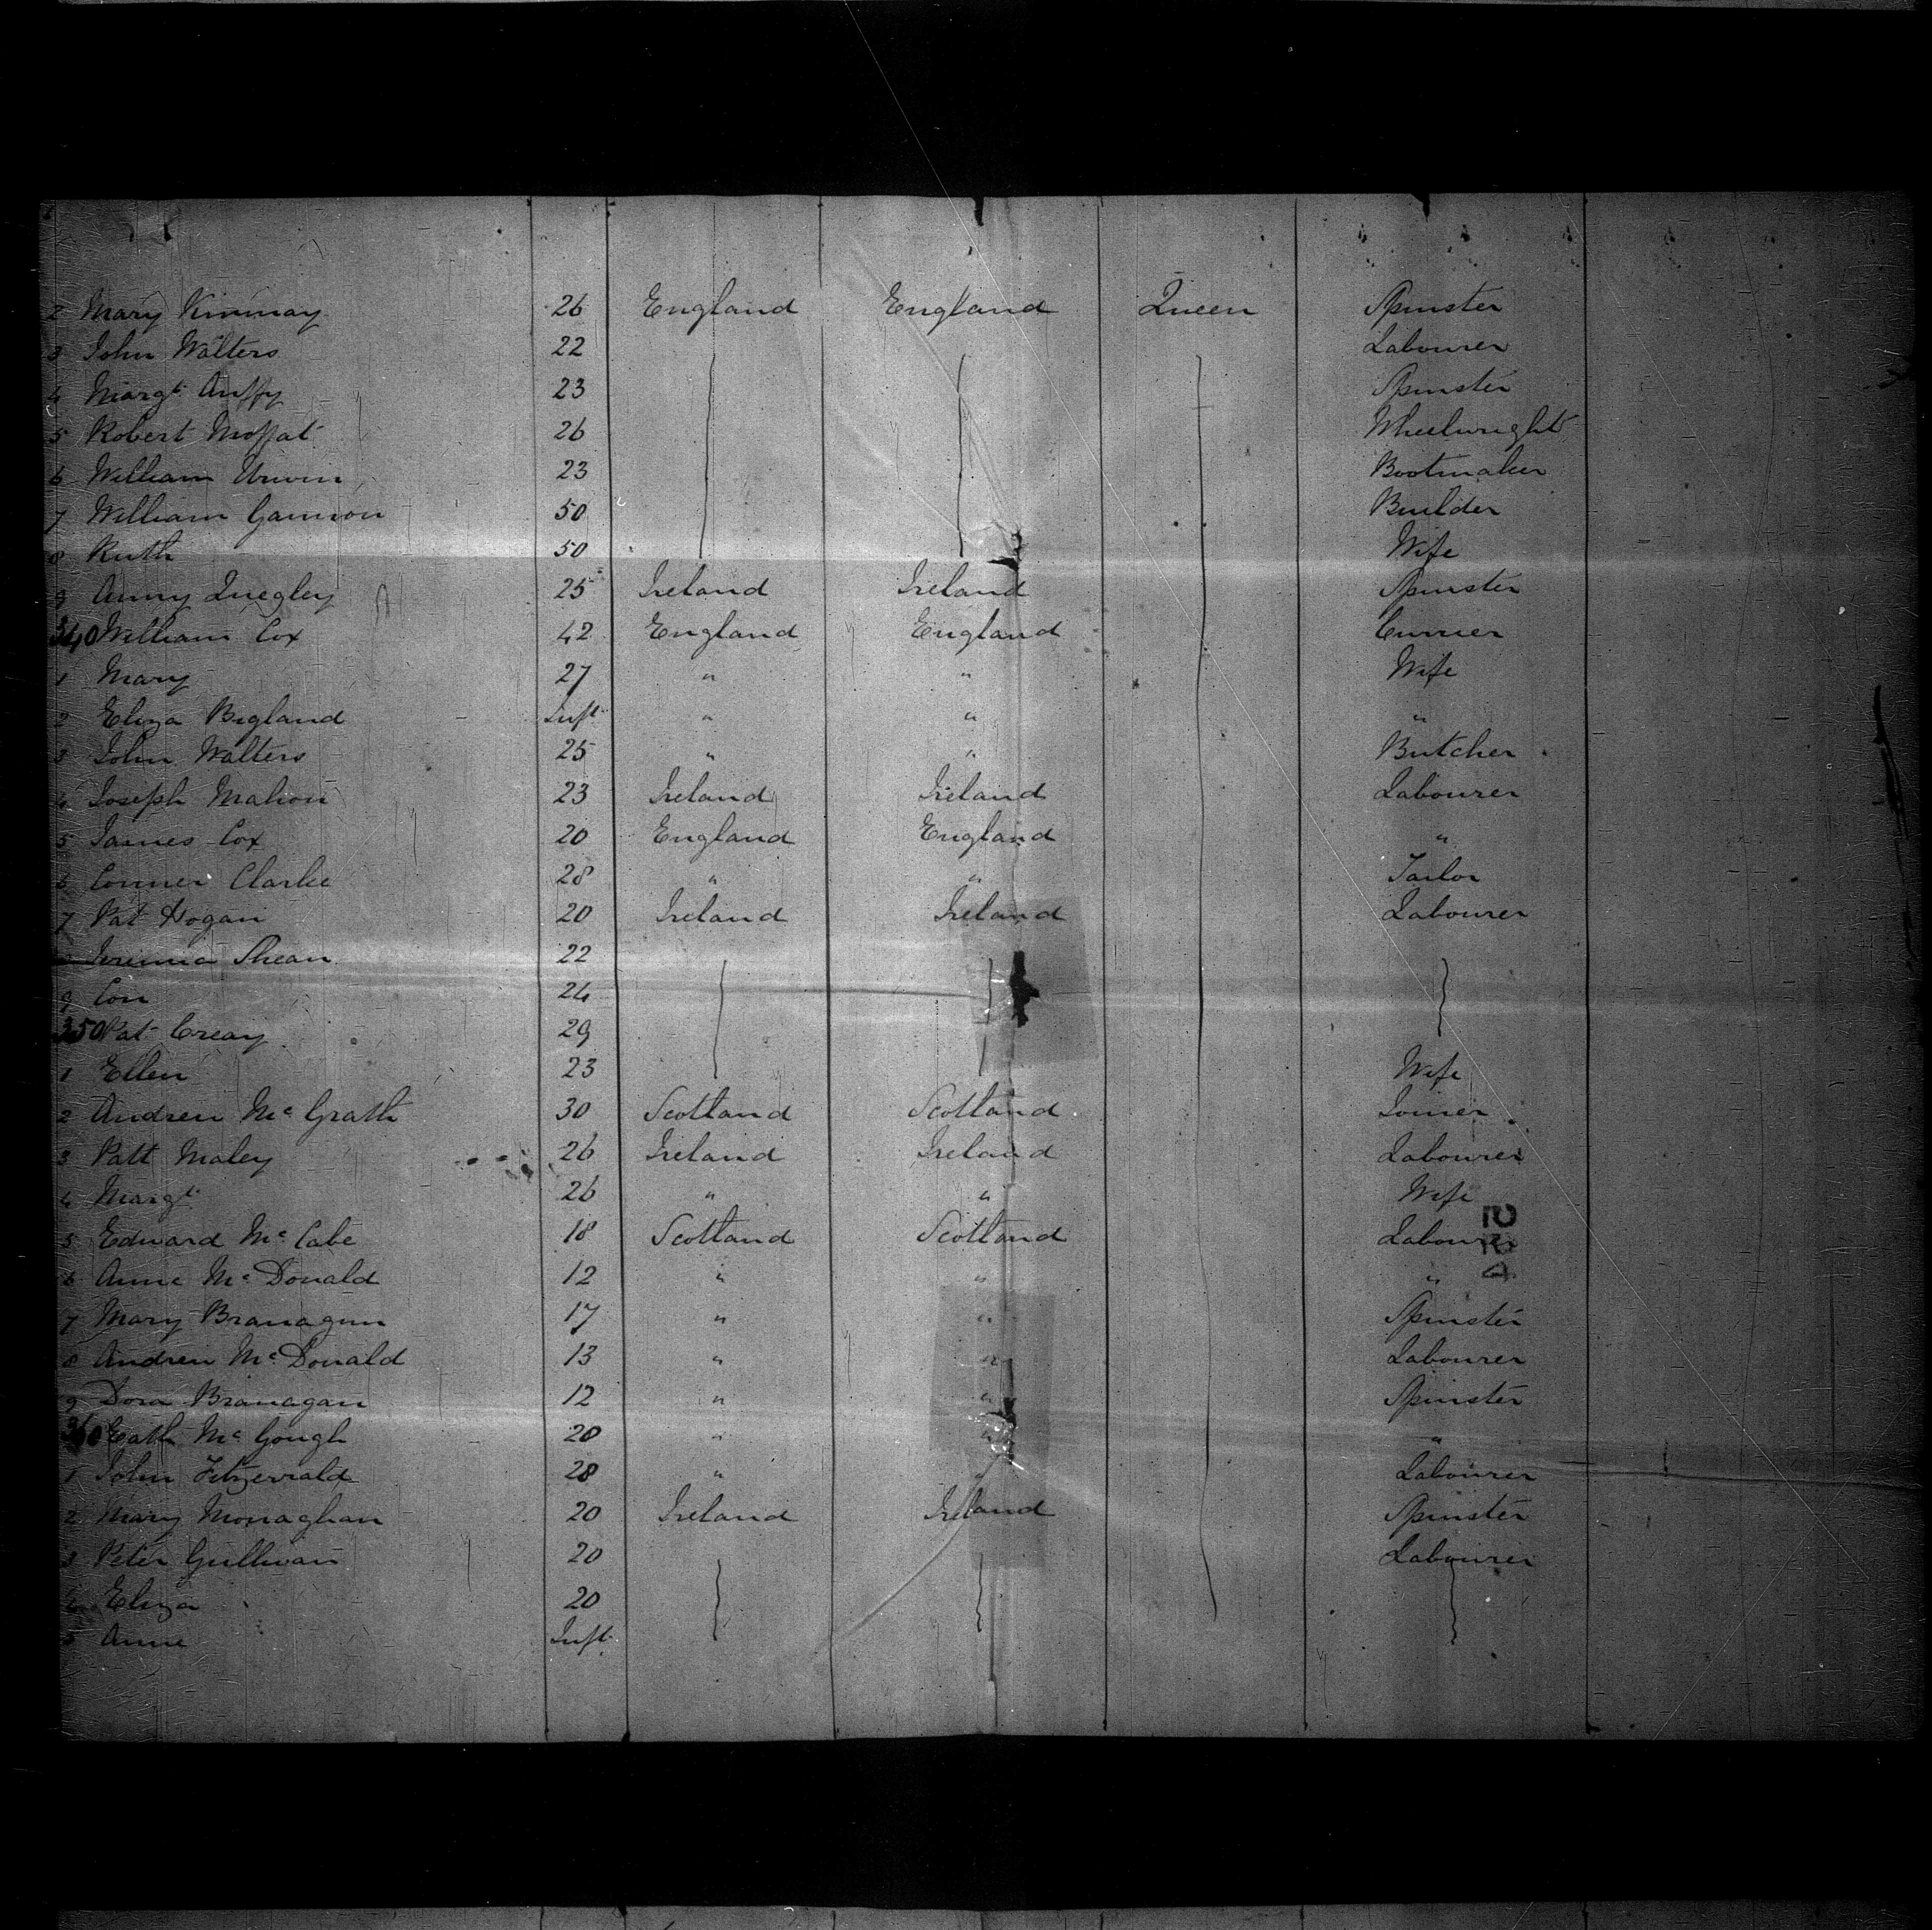 2 Mary Kinmay 26 England England Queen Spinster
3 John Walters 22 Labourer
4 Margt Duffy 23 Spinster
5 Robert Moffat 26 Wheelwright
6 William Unwin 23 Bootmaker
7 William Gannon 50 Builder
8 Ruth 50 Wife
9 Anny Quegley 25 Ireland Ireland Spinster
340 William Cox 42 England England Currier
1 Mary 27 " " Wife
2 Eliza Bigland Inft " " "
3 John Walters 25 " " Butcher
4 Joseph Mahon 23 Ireland Ireland Labourer
5 James Cox 20 England England "
6 Conner Clarke 28 " " Tailor
7 Pat Hogan 20 Ireland Ireland Labourer
Shean 22
9 Con 24
350 Pat Creay 29
1 Ellen 23 Wife
2 Andrew Mc Grath 30 Scotland Scotland Joiner
3 Patt Maley 26 Ireland Ireland Labourer
4 Margt 26 " " Wife
5 Edward Mc Cabe 18 Scotland Scotland Labourer
6 Anne Mc Donald 12 " " "
7 Mary Branagan 17 " " Spinster
8 Andrew Mc Donald 13 " " Labourer
9 Dora Branagan 12 " " Spinster
360 Cath Mc Gough 20 " " "
1 John Fitzgerald 28 " " Labourer
2 Mary Monaghan 20 Ireland Ireland Spinster
3 Peter Gullivan 20 Labourer
4 Eliza 20
5 Anne Inft